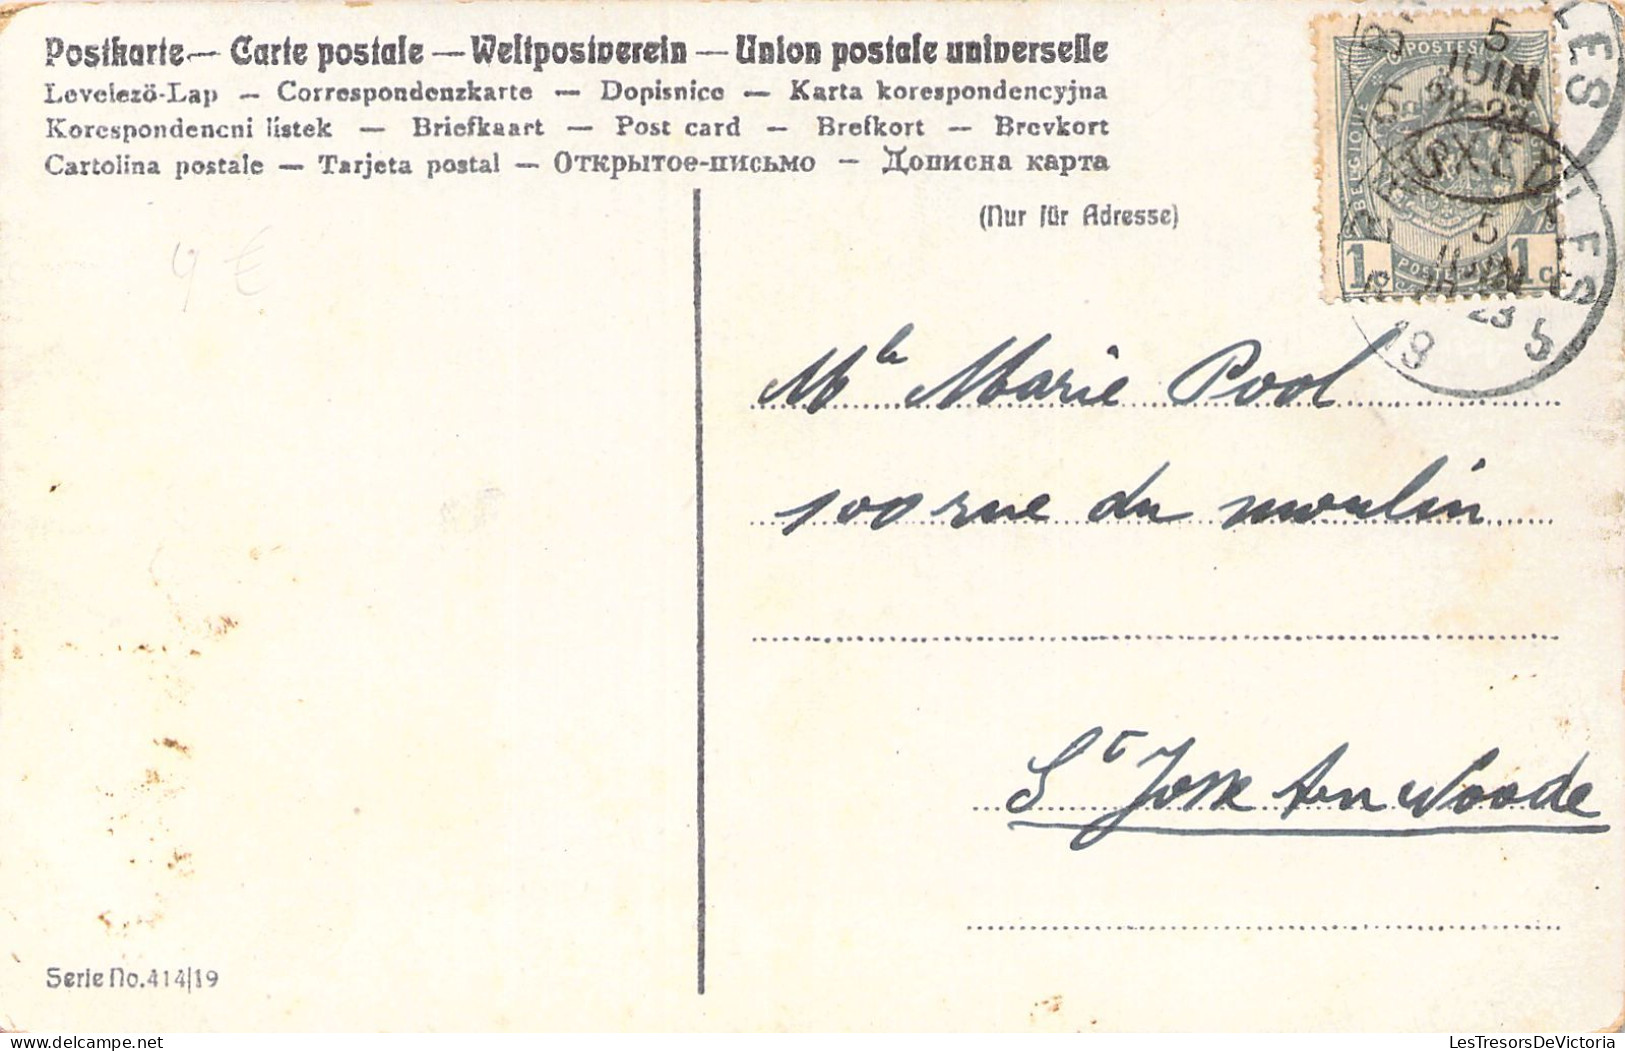 Postkarte — Carte postale — Weltpostverein — Union postale universelle
Levelező-Lap — Correspondenzkarte — Dopisnice — Karta korespondencyjna
Korespondencni listek — Briefkaart — Post card — Brefkort — Brevkort
Cartolina postale — Tarjeta postal — Открытое-письмо — Дописна карта
(Nur für Adresse)
POSTES
BELGIQUE
1 1c
5
JUIN
23
LES
5
23
9 €
Mlle Marie Pool
100 rue du moulin
St Josse ten Noode
Serie No. 414/19
LesTresorsDeVictoria